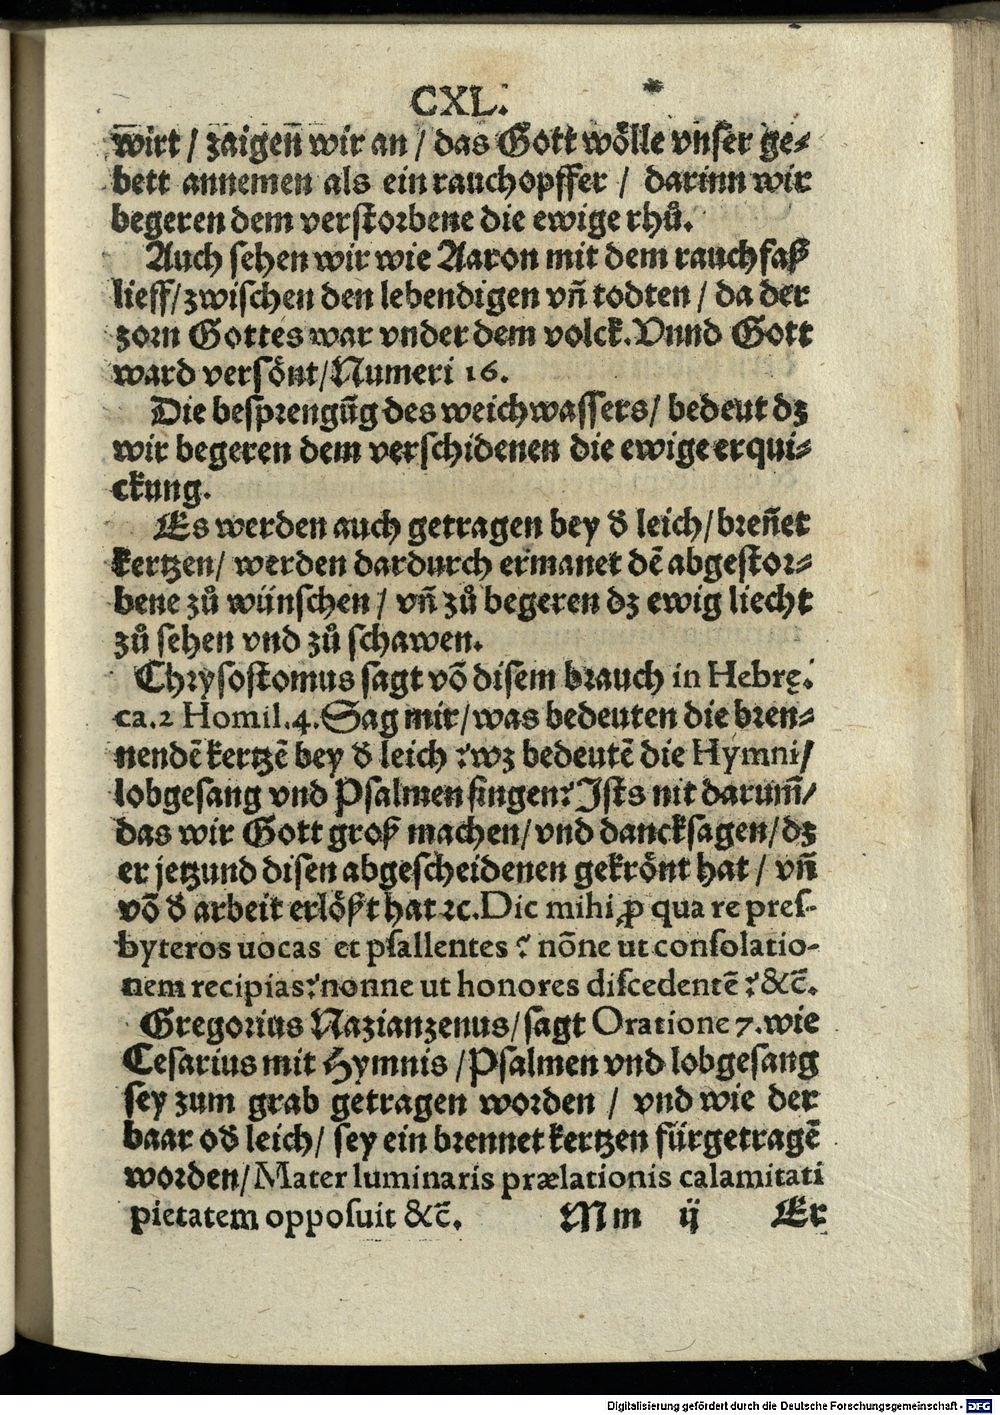 CXL.
wirt / zaigeñ wir an / das Gott wölle vnser ge⸗
bett annemen als ein rauchopffer / darinn wir
begeren dem verstorbene die ewige rhů.
Auch sehen wir wie Aaron mit dem rauchfaß
lieff/zwischen den lebendigen vñ todten / da der
zorn Gottes war vnder dem volck. Vnnd Gott
ward versönt/Numeri 16.
Die besprengũg des weichwassers/ bedeut dz
wir begeren dem verschidenen die ewige erqui⸗
ckung.
Es werden auch getragen bey d̓ leich/breñet
kertzen/ werden dardurch ermanet dẽ abgestor⸗
bene zů wünschen / vñ zů begeren dz ewig liecht
zů sehen vnd zů schawen.
Chrysostomus sagt võ disem brauch in Hebrę.
ca.2 Homil.4. Sag mir/was bedeuten die bren⸗
nendẽ kertzẽ bey d̓ leich ? wz bedeutẽ die Hymni/
lobgesang vnd Psalmen singen? Ists nit darum̃/
das wir Gott groß machen/vnd dancksagen/dz
er jetzund disen abgescheidenen gekrönt hat / vñ
võ d̓ arbeit erlößt hat ꝛc. Dic mihi ꝓ qua re preſ-
byteros uocas et pſallentes ? nõne ut conſolatio-
nem recipias? nonne ut honores diſcedentẽ ? &c̃.
Gregorius Nazianzenus/sagt Oratione 7. wie
Cesarius mit Hymnis /Psalmen vnd lobgesang
sey zum grab getragen worden / vnd wie der
baar od̓ leich/ sey ein brennet kertzen fürgetragẽ
worden/Mater luminaris prælationis calamitati
pietatem oppoſuit &c̃. Mm ij Er
Digitalisierung gefördert durch die Deutsche Forschungsgemeinschaft - DFG